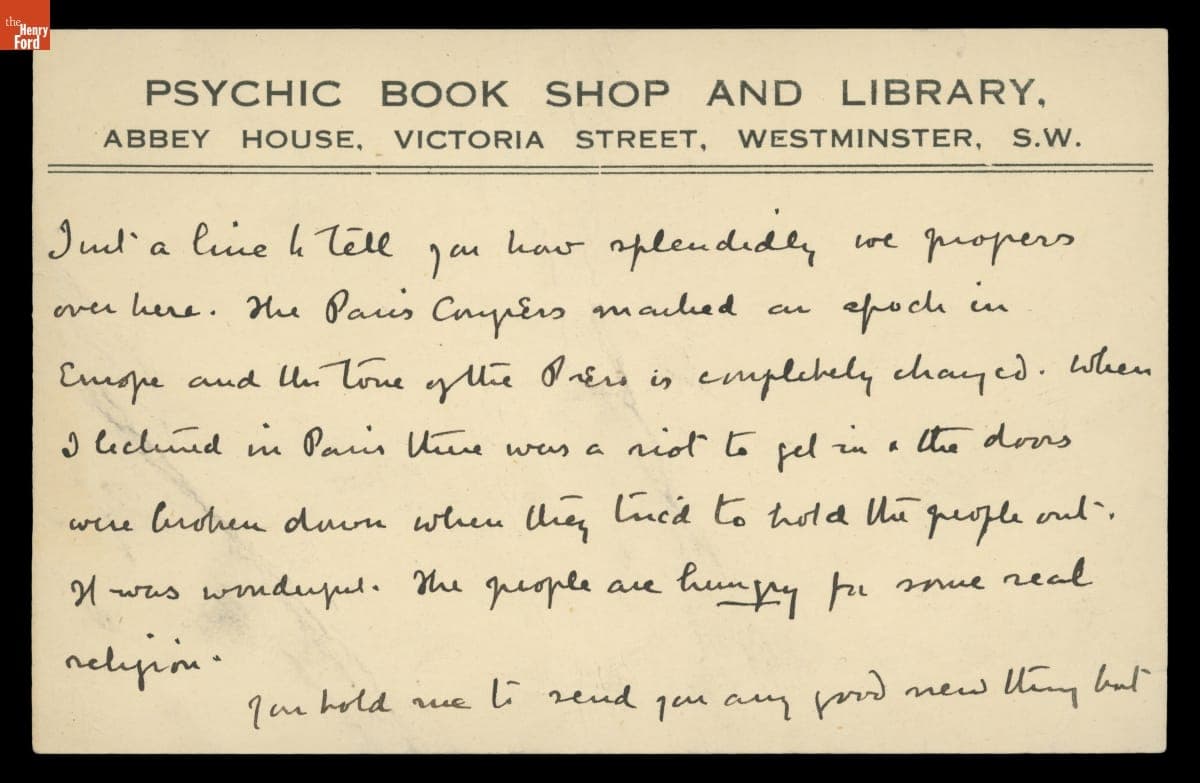 the
Henry
Ford
PSYCHIC BOOK SHOP AND LIBRARY,
ABBEY HOUSE, VICTORIA STREET, WESTMINSTER, S.W.
Just a line to tell you how splendidly we progress
over here. The Paris Congress marked an epoch in
Europe and the tone of the Press is completely changed. When
I lectured in Paris there was a riot to get in & the doors
were broken down when they tried to hold the people out.
It was wonderful. The people are hungry for some real
religion.
You told me to send you any good new thing but